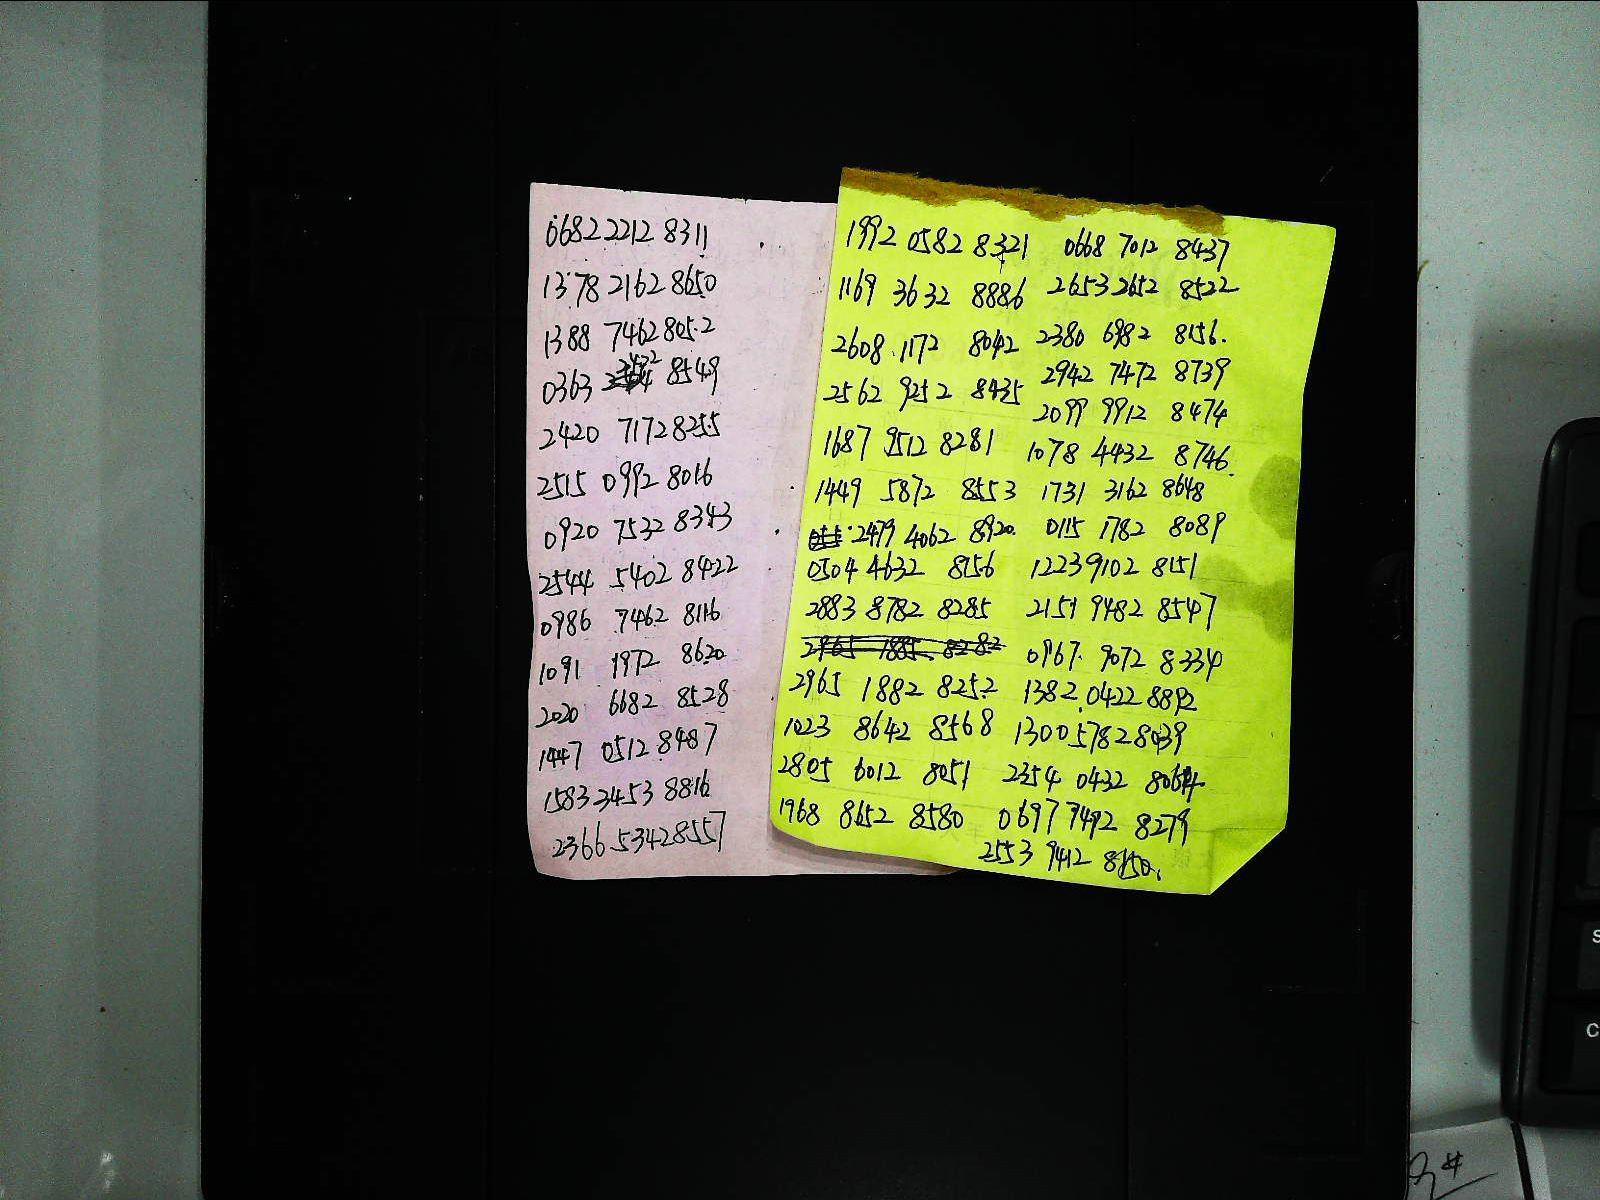 0682 2212 8311
1378 2162 8650
1388 7462 8052
0363 2432 8549
2420 7172 8255
2515 0992 8016
0920 7532 8343
2544 5402 8422
0986 7462 8116
1091 1972 8620
2020 6682 8528
1447 0512 8487
1583 3453 8816
2366 5342 8557
1992 0582 8321
1169 3632 8886
2608 1172 8042
2562 9252 8435
1687 9512 8281
1449 5872 8553
2479 4062 8920.
0504 4632 8756
2883 8782 8285
2965 1885 8282
2965 1882 8252
1023 8642 8568
2805 6012 8051
1968 8652 8580
0668 7012 8437
2653 2652 8522
2380 6982 8156.
2942 7472 8739
2099 9912 8474
1078 4432 8746.
1731 3162 8648
0115 1782 8089
1223 9102 8151
2151 9482 8547
0967 9072 8334
1382 0422 8892
1300 5782 8039
2354 0432
0697 7492 8279
2553 9412 8150.
S
C